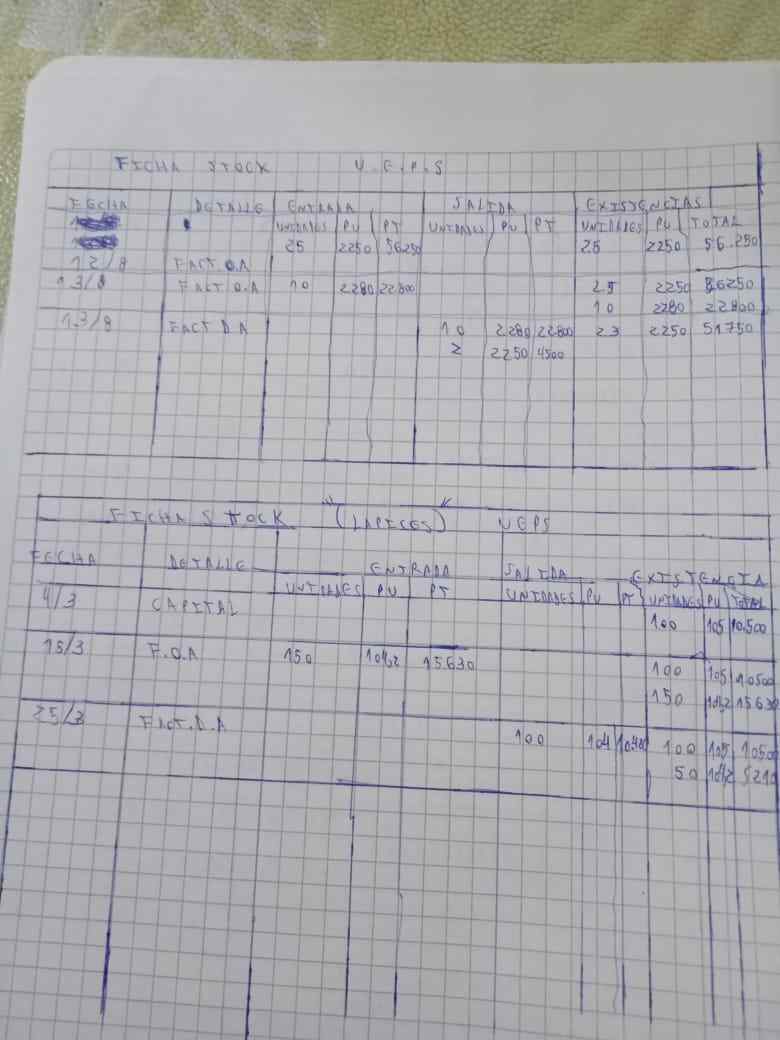 FICHA STOCK U.E.P.S
FECHA DETALLE ENTRADA SALIDA EXISTENCIAS
UNIDADES PU PT UNIDADES PU PT UNIDADES PU TOTAL
25 2250 56250 25 2250 56.250
12/8 FACT.O.A
13/8 FACT O.A 10 2280 22800 25 2250 56250
10 2280 22800
13/8 FACT D.A 10 2280 22800 23 2250 51750
2 2250 4500
FICHA STOCK (LAPICES) UEPS
FECHA DETALLE ENTRADA SALIDA EXISTENCIA
UNIDADES PU PT UNIDADES PU PT UNIDADES PU TOTAL
4/3 CAPITAL 100 105 10.500
15/3 F.O.A 150 104,2 15630 100 105 10500
150 104,2 15630
25/3 FACT.D.A 100 104 100 105 10500
50 104,2 5210